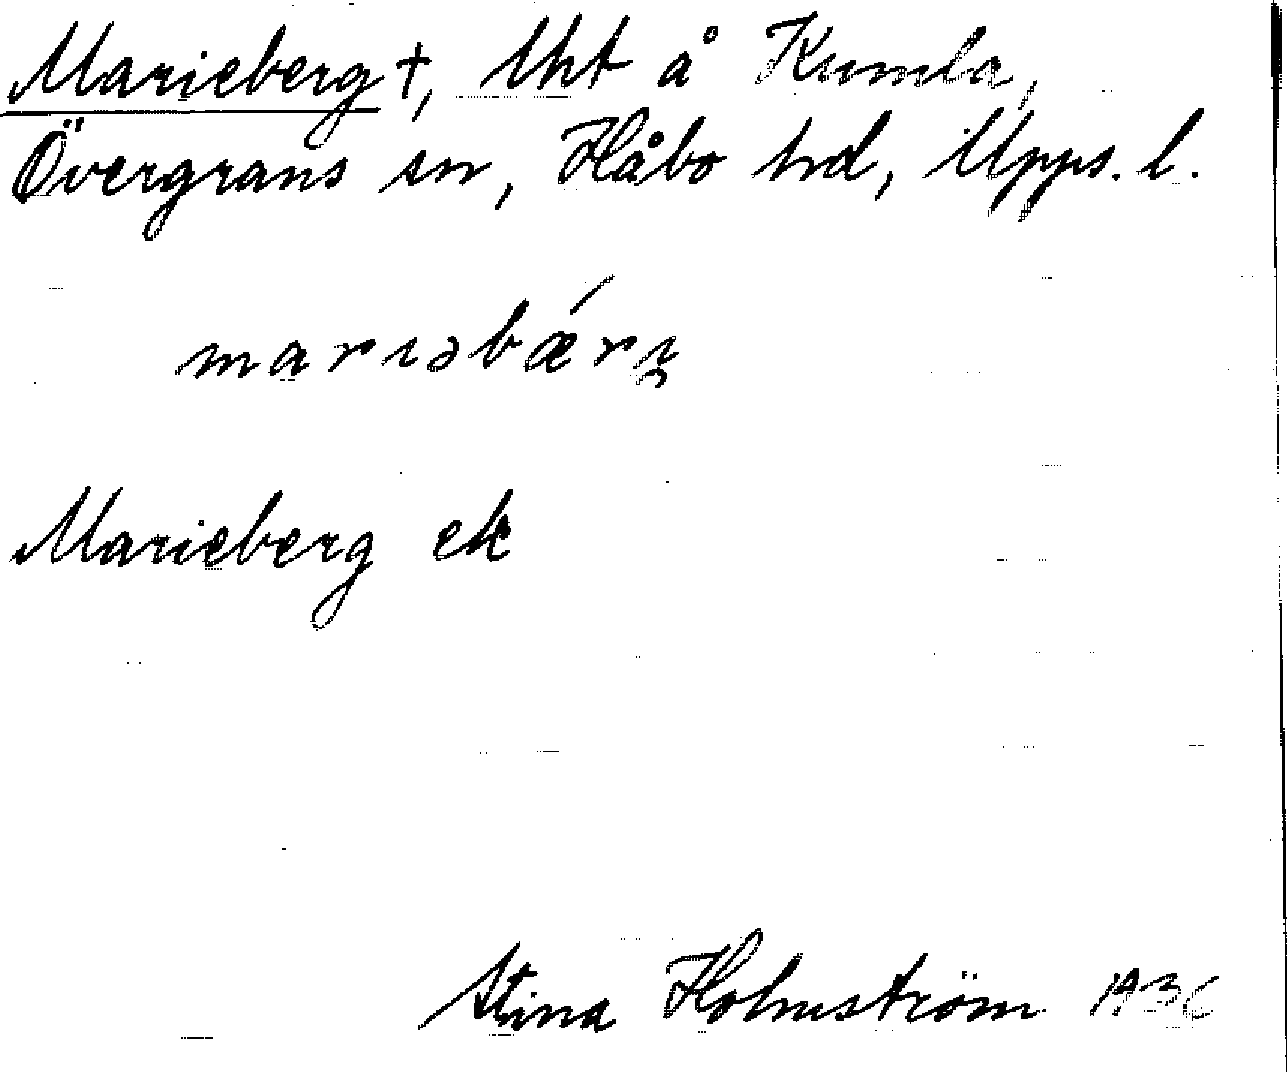 Marieberg †, lht å Kumla,
Övergrans sn, Håbo hd, Upps. l.
marıəbǽrı̨
Marieberg ek
Stina Holmström 1936